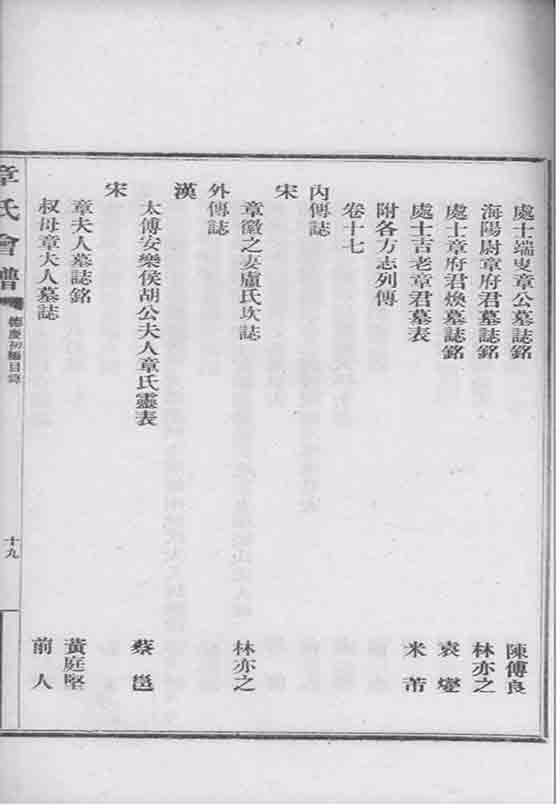 處士端叟章公墓誌銘 陳傅良
海陽尉章府君墓誌銘 林亦之
處士章府君煥墓誌銘 袁燮
處士吉老章君墓表 米芾
附各方志列傳
卷十七
內傳誌
宋
章徽之妻盧氏坎誌 林亦之
外傳誌
漢
太傅安樂侯胡公夫人章氏靈表 蔡邕
宋
章夫人墓誌銘 黃庭堅
叔母章夫人墓誌 前人
章氏會譜 德慶初編目錄 十九